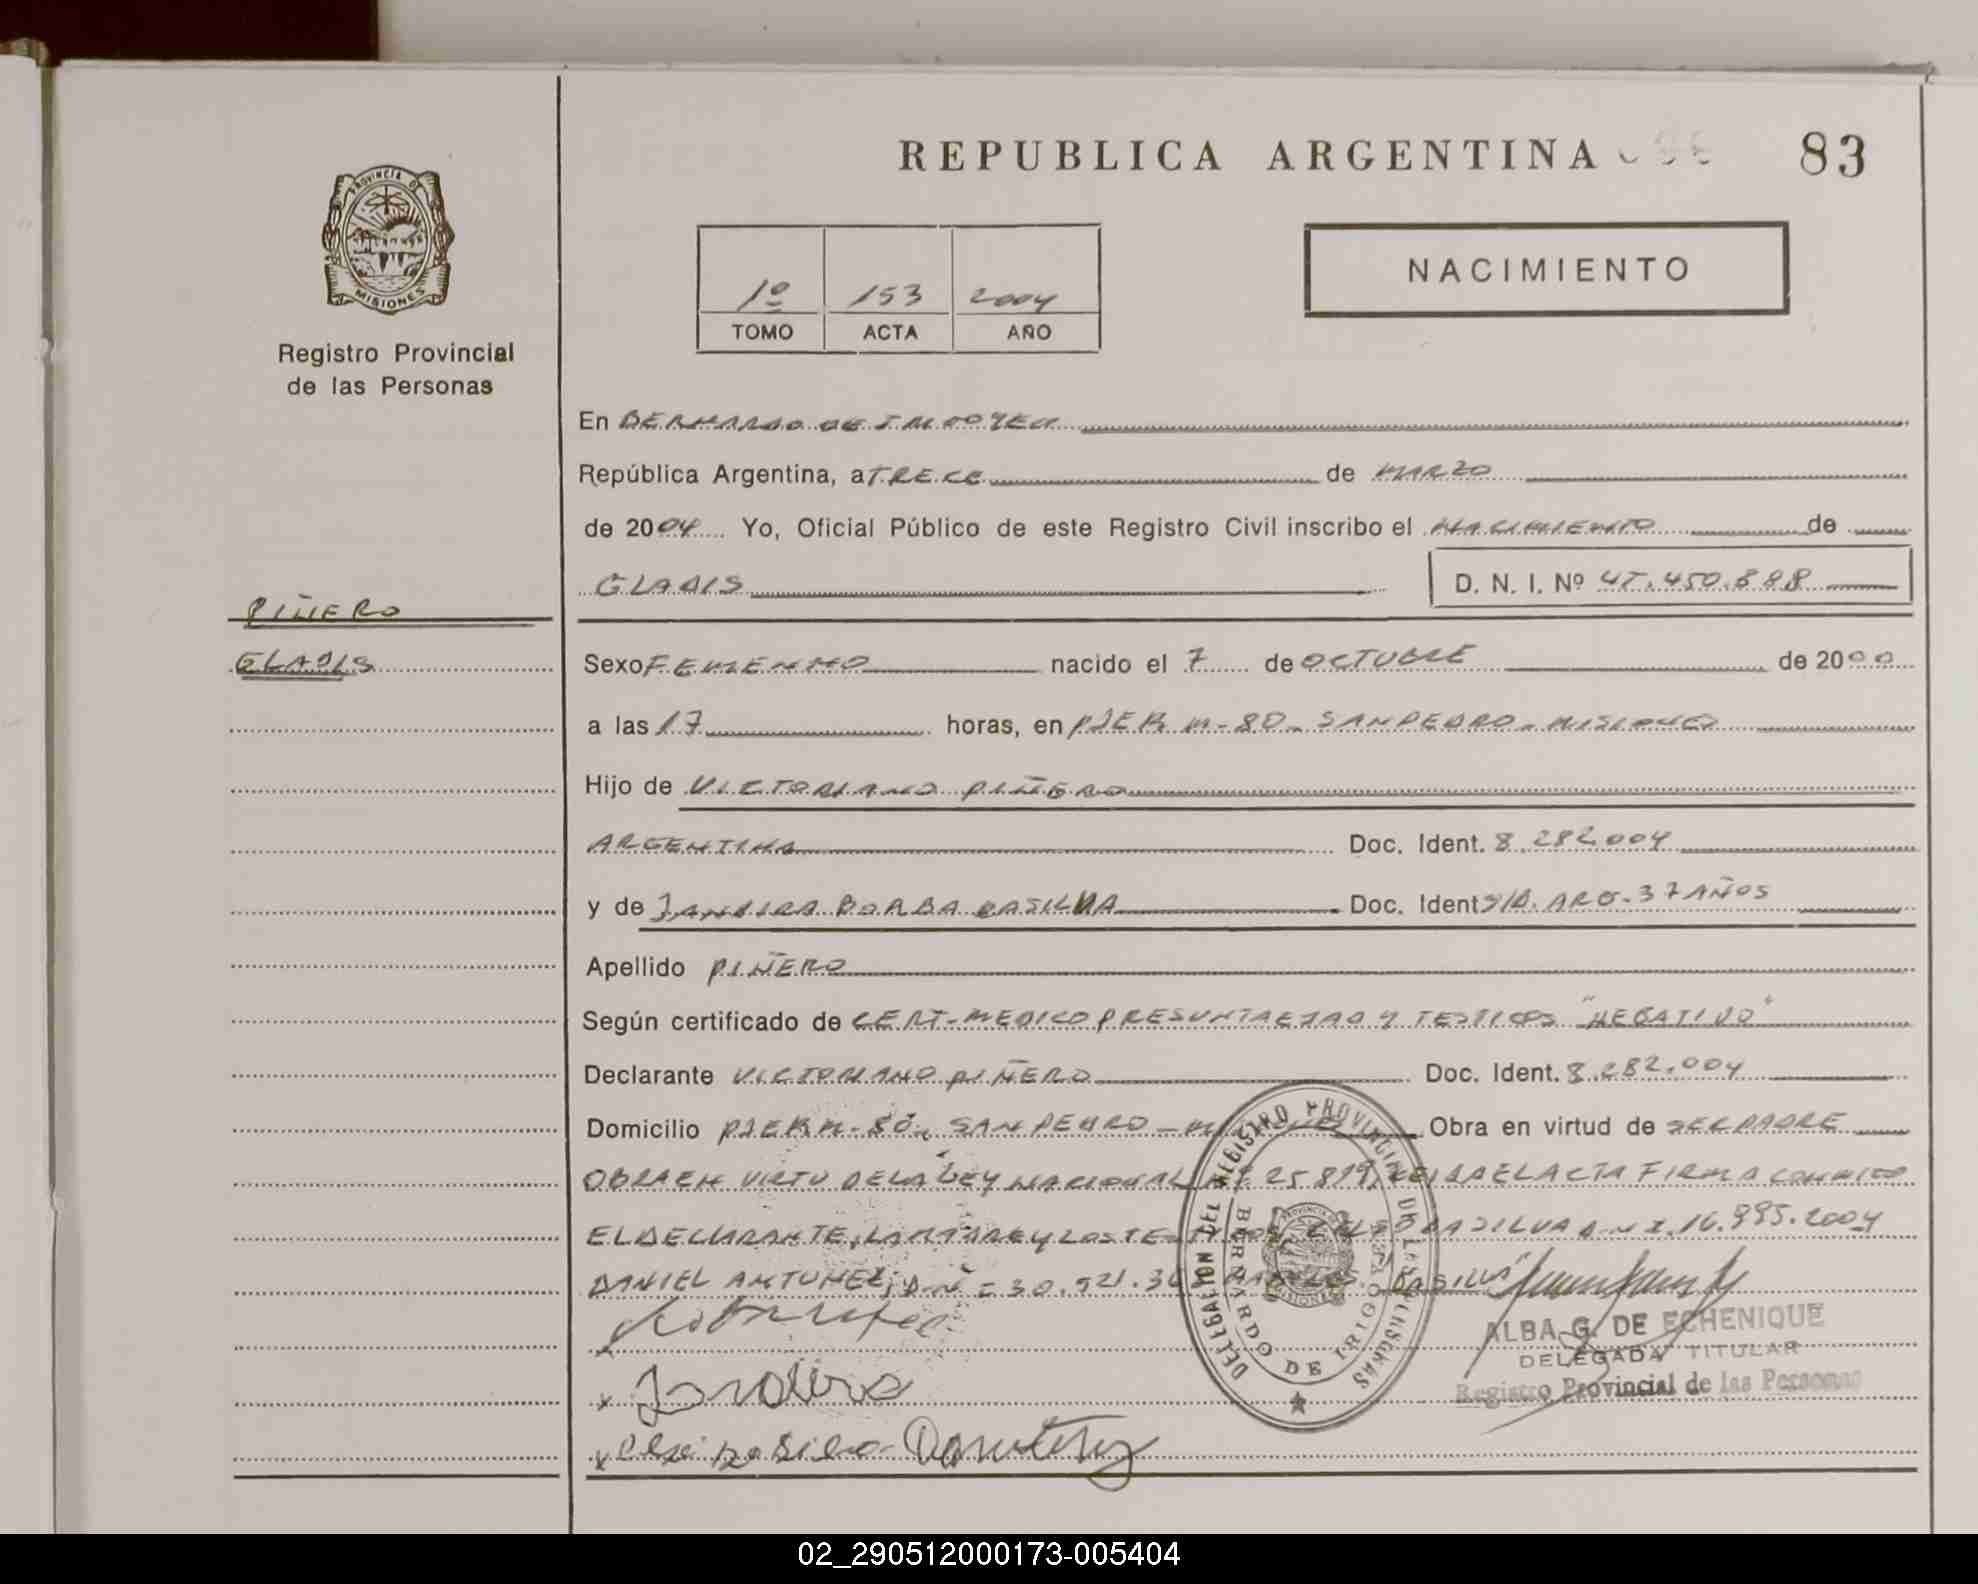 REPUBLICA ARGENTINA 83
PROVINCIA DE
MISIONES
Registro Provincial
de las Personas
1º 153 2004
TOMO ACTA AÑO
NACIMIENTO
En BERNARDO DE IRIGOYEN
República Argentina, a TRECE de MARZO
de 2004 Yo, Oficial Público de este Registro Civil inscribo el NACIMIENTO de
GLADIS D. N. I. Nº 47.450.888
PIÑERO
GLADIS
Sexo FEMENINO nacido el 7 de OCTUBRE de 2000
a las 17 horas, en PJE KM-80- SAN PEDRO- MISIONES
Hijo de VICTORIANO PIÑERO
ARGENTINA Doc. Ident. 8.282.004
y de JANDIRA BORBA DASILVA Doc. Ident S/D. ARG-37 AÑOS
Apellido PIÑERO
Según certificado de CERT-MEDICO PRESUNTA EDAD Y TESTIGOS "NEGATIVO"
Declarante VICTORIANO PIÑERO Doc. Ident. 8.282.004
Domicilio PJE KM-80- SAN PEDRO- Obra en virtud de SER PADRE
OBRA EN VIRTU DE LA LEY NACIONAL Nº 25819, LEIDA EL ACTA FIRMA CONMIGO
EL DECLARANTE, LA MADRE Y LOS DASILVA D.N.I. 16.995.2004
DANIEL ANTUNEZ, D.N = 30.921. DASILVA
DELEGACION DEL REGISTRO PROVINCIAL DE LAS PERSONAS
BERNARDO DE IRIGOYEN
PROVINCIA DE
MISIONES
ALBA G. DE ECHENIQUE
DELEGADA TITULAR
Registro Provincial de las Personas
x Jandira
x Da Silva
02_290512000173-005404